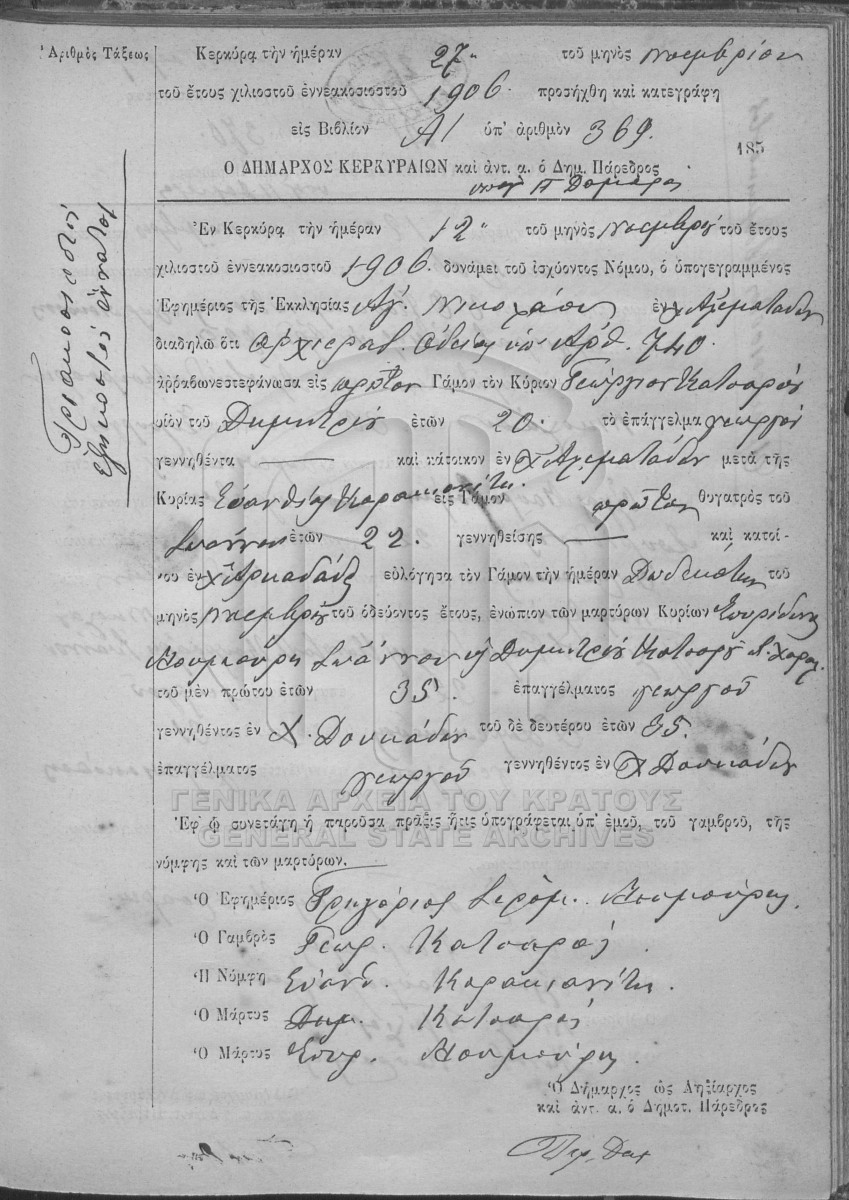 Ἀριθμὸς Τάξεως
Τριακοσιοστὸν
ἑξηκοστὸν ἔννατον
Κερκύρᾳ τὴν ἡμέραν 27 τοῦ μηνὸς Νοεμβρίου
τοῦ ἔτους χιλιοστοῦ ἐννεακοσιοστοῦ 1906. προσήχθη καὶ κατεγράφη
εἰς Βιβλίον Α/ ὑπ' ἀριθμὸν 369.
185
Ο ΔΗΜΑΡΧΟΣ ΚΕΡΚΥΡΑΙΩΝ καὶ ἀντ. α. ὁ Δημ. Πάρεδρος
Ἐν Κερκύρᾳ τὴν ἡμέραν 12 τοῦ μηνὸς Νοεμβρίου τοῦ ἔτους
χιλιοστοῦ ἐννεακοσιοστοῦ 1906. δυνάμει τοῦ ἰσχύοντος Νόμου, ὁ ὑπογεγραμμένος
Ἐφημέριος τῆς Ἐκκλησίας Ἁγ. Νικολάου ἐν χ Ἀλειματάδων
διαδηλῶ ὅτι ἀρχιερατ. ἀδείᾳ ὑπ' Ἀρθ. 740.
ἀῤῥαβωνεστεφάνωσα εἰς πρῶτον Γάμον τὸν Κύριον Γεώργιον Κατσαρὸν
υἱὸν τοῦ Δημητρίου ἐτῶν 20. τὸ ἐπάγγελμα γεωργοῦ
γεννηθέντα — καὶ κάτοικον ἐν χ Ἀλειματάδων μετὰ τῆς
Κυρίας Εὐανθίας Κορακιανίτη. εἰς Γάμον πρῶτον θυγατρὸς τοῦ
Ἰωάννου ἐτῶν 22. γεννηθείσης — καὶ κατοί-
κου ἐν χ Ἀρκαδάδες εὐλόγησα τὸν Γάμον τὴν ἡμέραν Δωδεκάτην τοῦ
μηνὸς Νοεμβρίου τοῦ ὁδεύοντος ἔτους, ἐνώπιον τῶν μαρτύρων Κυρίων Σπυρίδωνος
Κουμπούρη Ἰωάννου ἢ Δημητρίου Κατσαροῦ
τοῦ μὲν πρώτου ἐτῶν 35. ἐπαγγέλματος γεωργοῦ
γεννηθέντος ἐν χ. Δουκάδων τοῦ δὲ δευτέρου ἐτῶν 35.
ἐπαγγέλματος γεωργοῦ γεννηθέντος ἐν χ Δουκάδων
ΓΕΝΙΚΑ ΑΡΧΕΙΑ ΤΟΥ ΚΡΑΤΟΥΣ
Ἐφ' ᾧ συνετάγη ἡ παροῦσα πρᾶξις ἥτις ὑπογράφεται ὑπ' ἐμοῦ, τοῦ γαμβροῦ, τῆς
GENERAL STATE ARCHIVES
νύμφης καὶ τῶν μαρτύρων.
Ὁ Ἐφημέριος Γρηγόριος Ἱερομ. Κουμπούρης.
Ὁ Γαμβρὸς Γεωρ. Κατσαρός.
Ἡ Νύμφη Εὐανθ. Κορακιανίτη.
Ὁ Μάρτυς Δημ. Κατσαρός
Ὁ Μάρτυς Σπυρ. Κουμπούρης.
Ὁ Δήμαρχος ὡς Ληξίαρχος
καὶ ἀντ. α. ὁ Δημοτ. Πάρεδρος